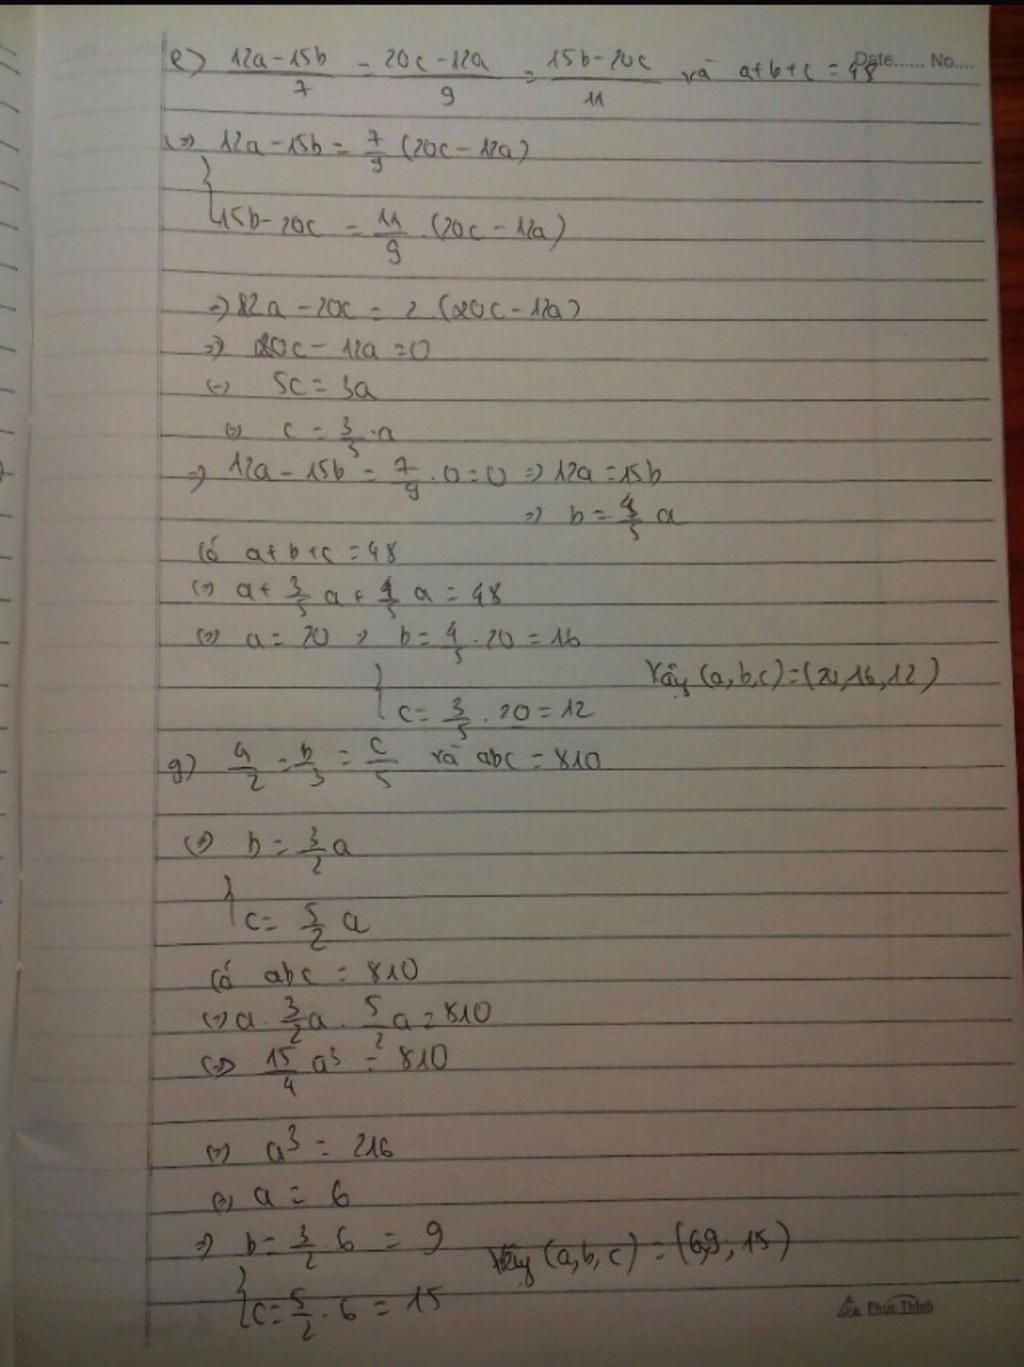 Date...... No....
e) (12a-15b)/7 = (20c-12a)/9 = (15b-20c)/11 và a+b+c = 48
(=) 12a-15b = 7/9 (20c-12a)
{ 15b-20c = 11/9 . (20c-12a)
=) 12a-20c = 2 (20c-12a)
=) 20c-12a = 0
(=) 5c = 3a
(=) c = 3/5 . a
=) 12a-15b = 7/9 . 0 = 0 =) 12a = 15b
=) b = 4/5 a
Có a+b+c = 48
(=) a + 3/5 a + 4/5 a = 48
(=) a = 20 =) b = 4/5 . 20 = 16
Vậy (a,b,c) = (20,16,12)
{ c = 3/5 . 20 = 12
g) a/2 = b/3 = c/5 và abc = 810
(=) b = 3/2 a
{ c = 5/2 a
Có abc = 810
(=) a . 3/2 a . 5/2 a = 810
(=) 15/4 a³ = 810
(=) a³ = 216
(=) a = 6
=) b = 3/2 . 6 = 9
Vậy (a,b,c) = (6,9,15)
{ c = 5/2 . 6 = 15
Phúc Thịnh